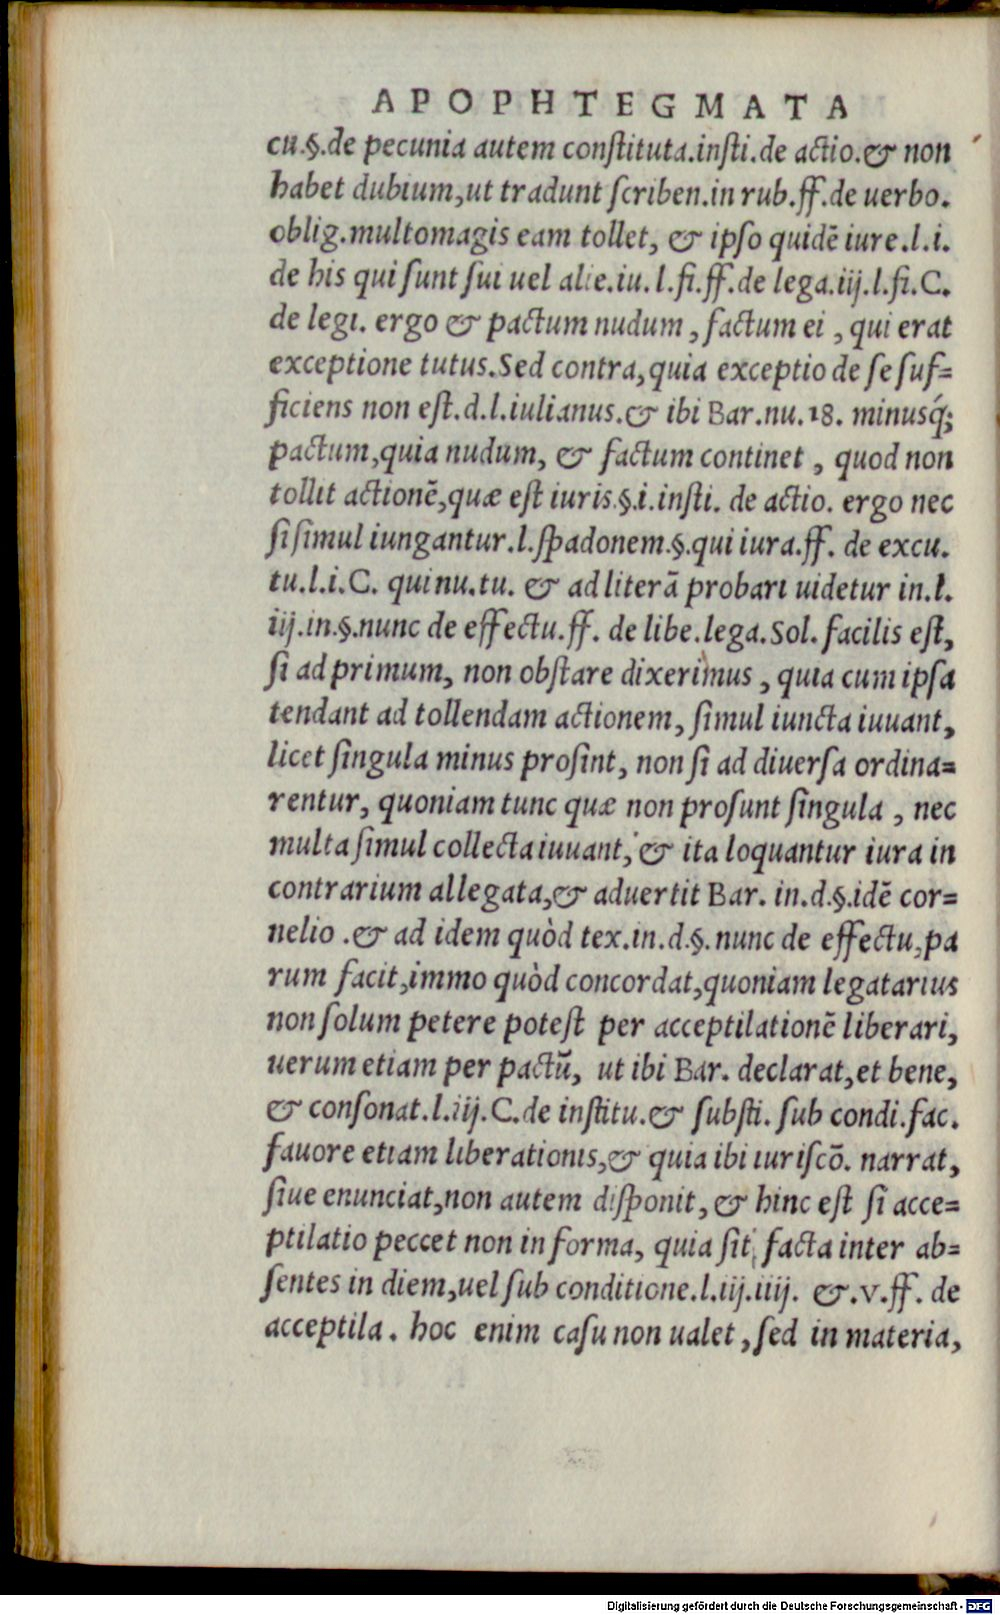 APOPHTEGMATA
cu.§.de pecunia autem conſtituta.inſti.de actio.& non
habet dubium,ut tradunt ſcriben.in rub.ff.de uerbo.
oblig.multomagis eam tollet, & ipſo quidē iure.l.i.
de his qui ſunt ſui uel alie.iu.l.fi.ff.de lega.iij.l.fi.C.
de legi. ergo & pactum nudum, factum ei, qui erat
exceptione tutus.Sed contra,quia exceptio de ſe ſuf=
ficiens non eſt.d.l.iulianus.& ibi Bar.nu.18. minusq́;
pactum,quia nudum, & factum continet, quod non
tollit actionē,quæ eſt iuris.§.i.inſti. de actio. ergo nec
ſi ſimul iungantur.l.ſpadonem.§.qui iura.ff. de excu.
tu.l.i.C. qui nu.tu. & ad literā probari uidetur in.l.
iij.in.§.nunc de effectu.ff. de libe.lega.Sol. facilis eſt,
ſi ad primum, non obſtare dixerimus, quia cum ipſa
tendant ad tollendam actionem, ſimul iuncta iuuant,
licet ſingula minus proſint, non ſi ad diuerſa ordina=
rentur, quoniam tunc quæ non proſunt ſingula, nec
multa ſimul collecta iuuant, & ita loquantur iura in
contrarium allegata,& aduertit Bar. in.d.§.idē cor=
nelio.& ad idem quòd tex.in.d.§. nunc de effectu,pa
rum facit,immo quòd concordat,quoniam legatarius
non ſolum petere poteſt per acceptilationē liberari,
uerum etiam per pactū, ut ibi Bar. declarat,et bene,
& conſonat.l.iij.C.de inſtitu.& ſubſti. ſub condi.fac.
fauore etiam liberationis,& quia ibi iuriſcō. narrat,
ſiue enunciat,non autem diſponit, & hinc eſt ſi acce=
ptilatio peccet non in forma, quia ſit facta inter ab=
ſentes in diem,uel ſub conditione.l.iij.iiij. &.v.ff. de
acceptila. hoc enim caſu non ualet, ſed in materia,
Digitalisierung gefördert durch die Deutsche Forschungsgemeinschaft - DFG